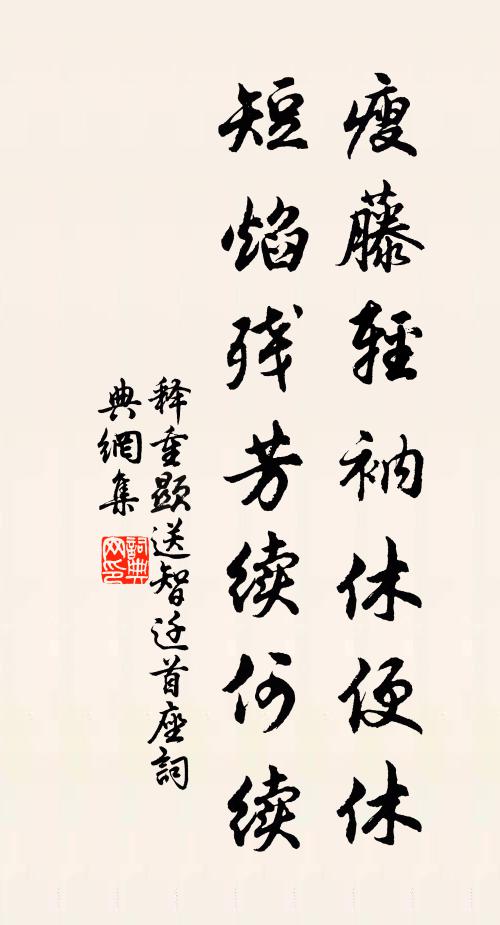 瘦藤輕衲休便休
短焰残芳续何续
释重顕送智迁首座詞
典網集
詞典
网印